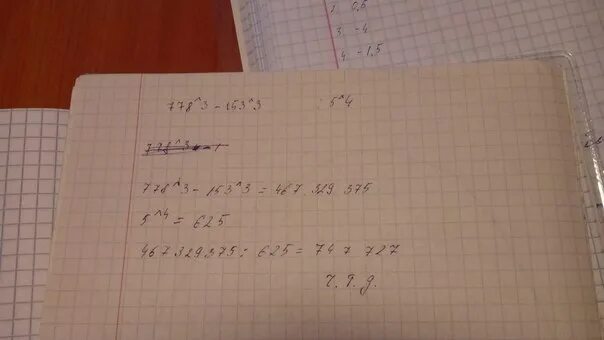 1. 0,5
3. -4
4. -1,5
778^3 - 153^3 : 5^4
778^3 - 153^3 = 467 329 375
5^4 = 625
467329375 : 625 = 747 727
ч. т. д.